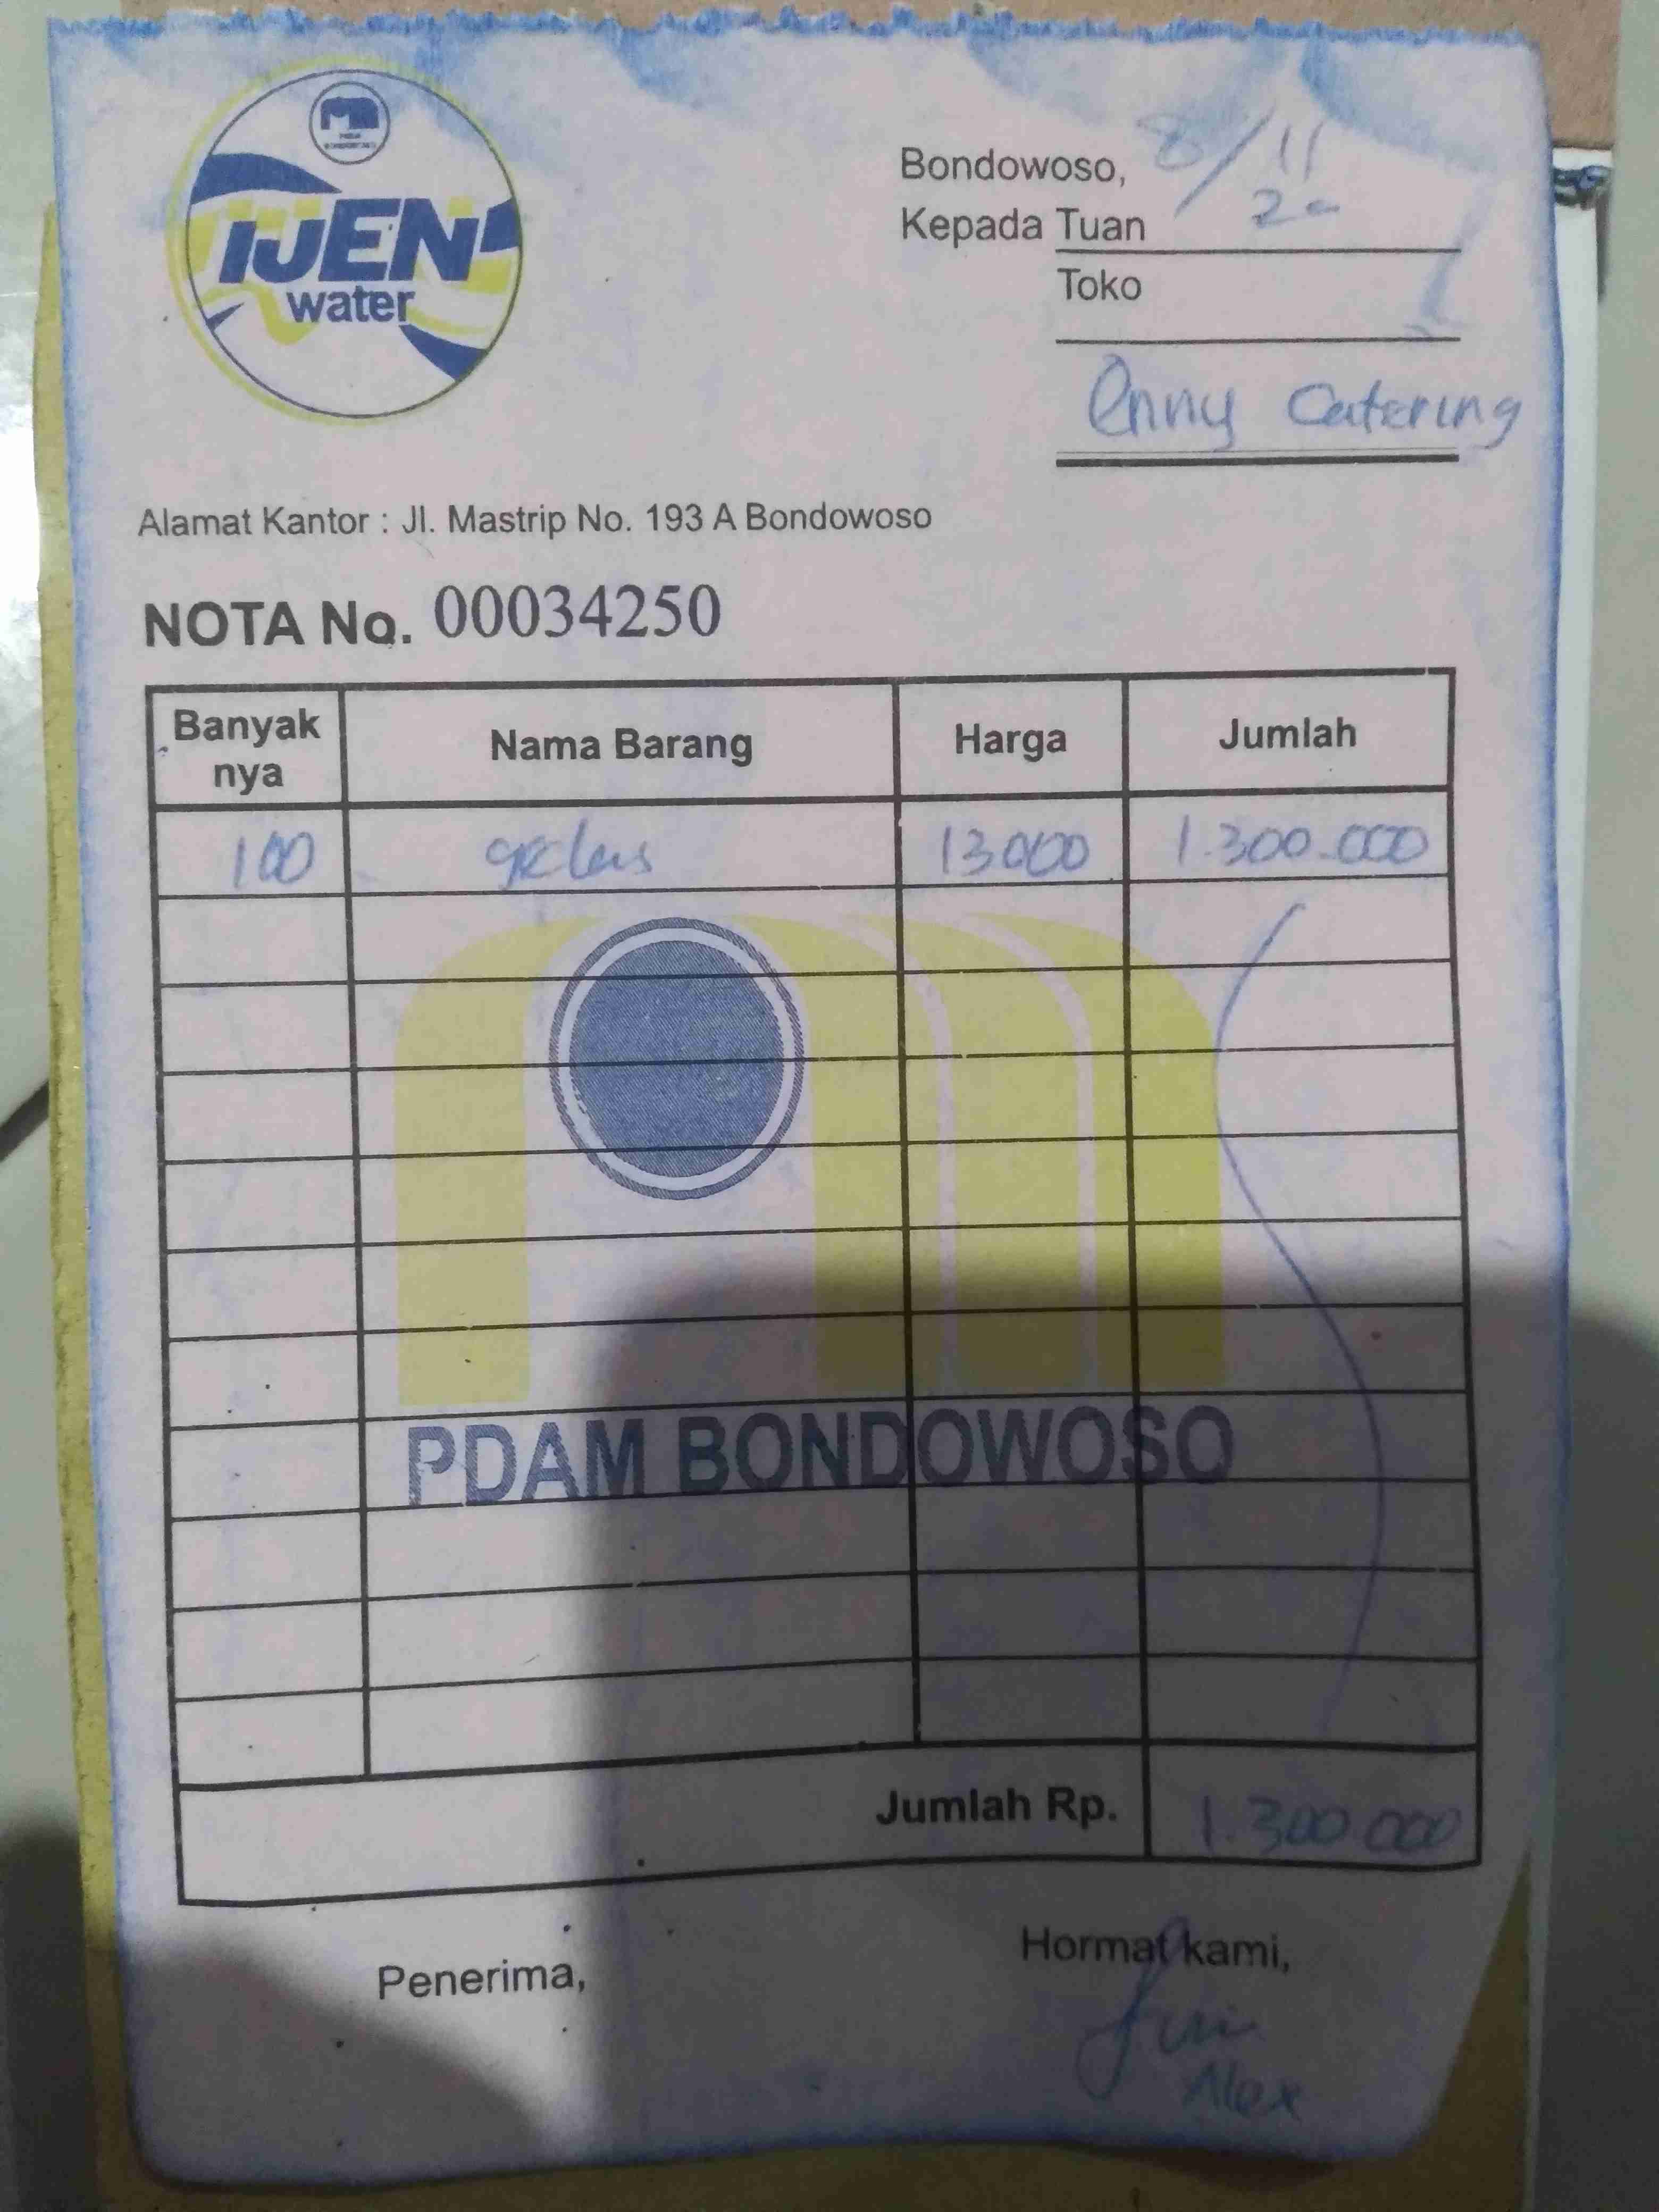 IJEN
water
Bondowoso, 8/11
20
Kepada Tuan
Toko
Enny Catering
Alamat Kantor : Jl. Mastrip No. 193 A Bondowoso
NOTA No. 00034250
Banyak nya Nama Barang Harga Jumlah
100 gelas 13000 1.300.000
PDAM BONDOWOSO
Jumlah Rp. 1.300.000
Penerima, Hormat kami,
Alex